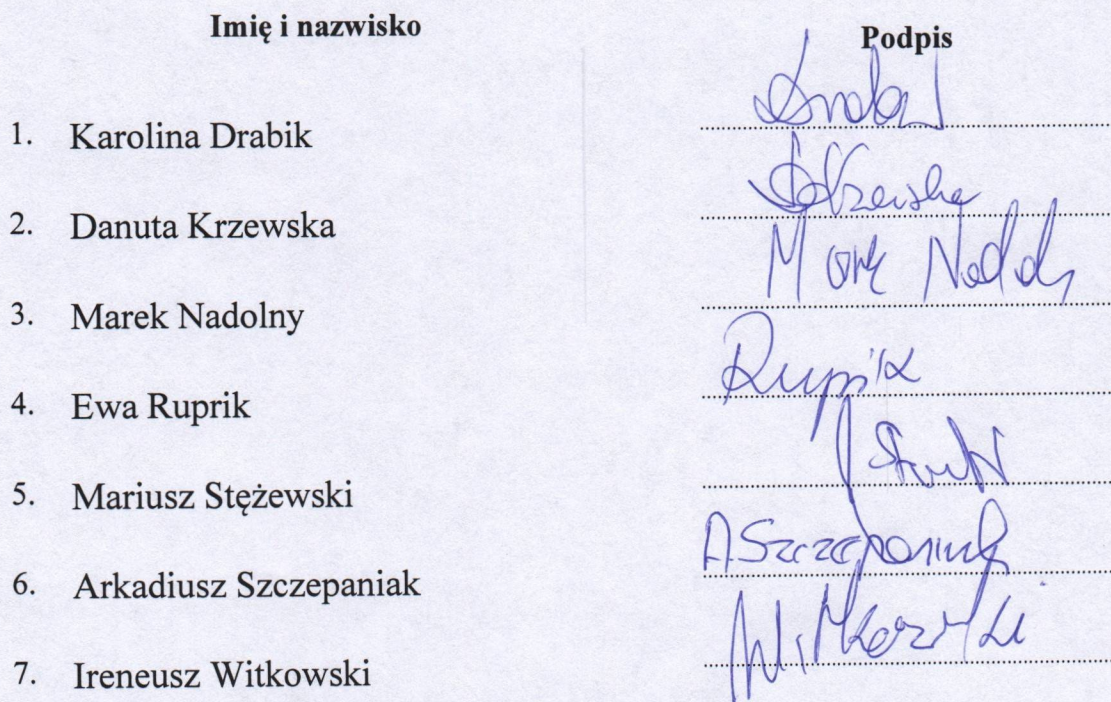 Imię i nazwisko Podpis
1. Karolina Drabik
2. Danuta Krzewska
3. Marek Nadolny
4. Ewa Ruprik Rupik
5. Mariusz Stężewski
6. Arkadiusz Szczepaniak ASzczepaniak
7. Ireneusz Witkowski Witkowski